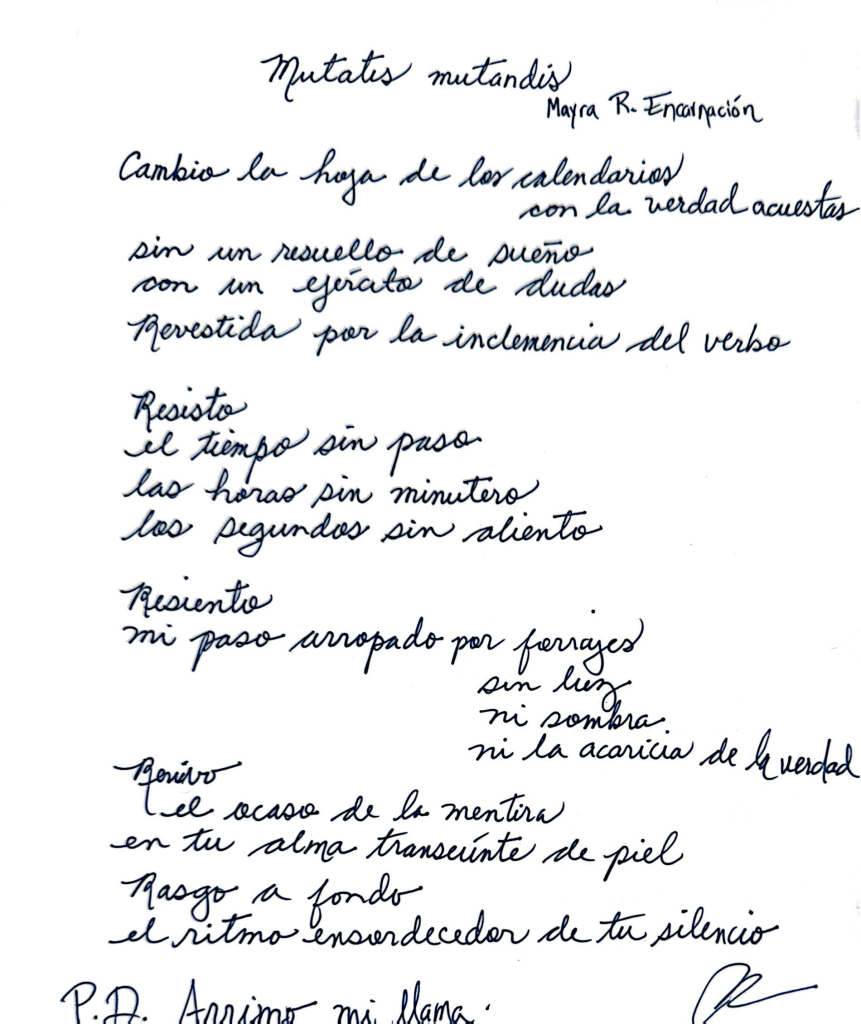 Mutatis mutandis
Mayra R. Encarnación
Cambio la hoja de los calendarios
con la verdad acuestas
sin un resuello de sueño
con un ejército de dudas
Revestida por la inclemencia del verbo
Resisto
el tiempo sin paso
las horas sin minutero
los segundos sin aliento
Resiento
mi paso arropado por forrajes
sin luz
ni sombra
ni la acaricia de la verdad
Revivo
el ocaso de la mentira
en tu alma transeúnte de piel
Rasgo a fondo
el ritmo ensordecedor de tu silencio
P.D. Arrimo mi llama.